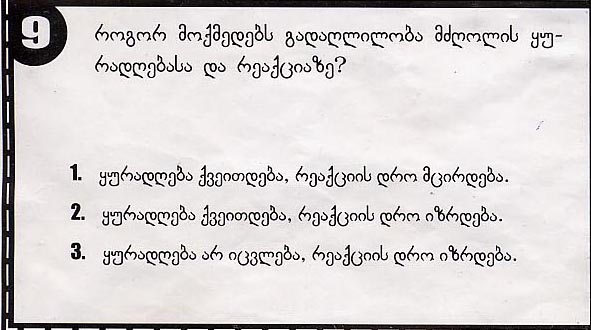 9
როგორ მოქმედებს გადაღლილობა მძღოლის ყუ-
რადღებასა და რეაქციაზე?
1. ყურადღება ქვეითდება, რეაქციის დრო მცირდება.
2. ყურადღება ქვეითდება, რეაქციის დრო იზრდება.
3. ყურადღება არ იცვლება, რეაქციის დრო იზრდება.